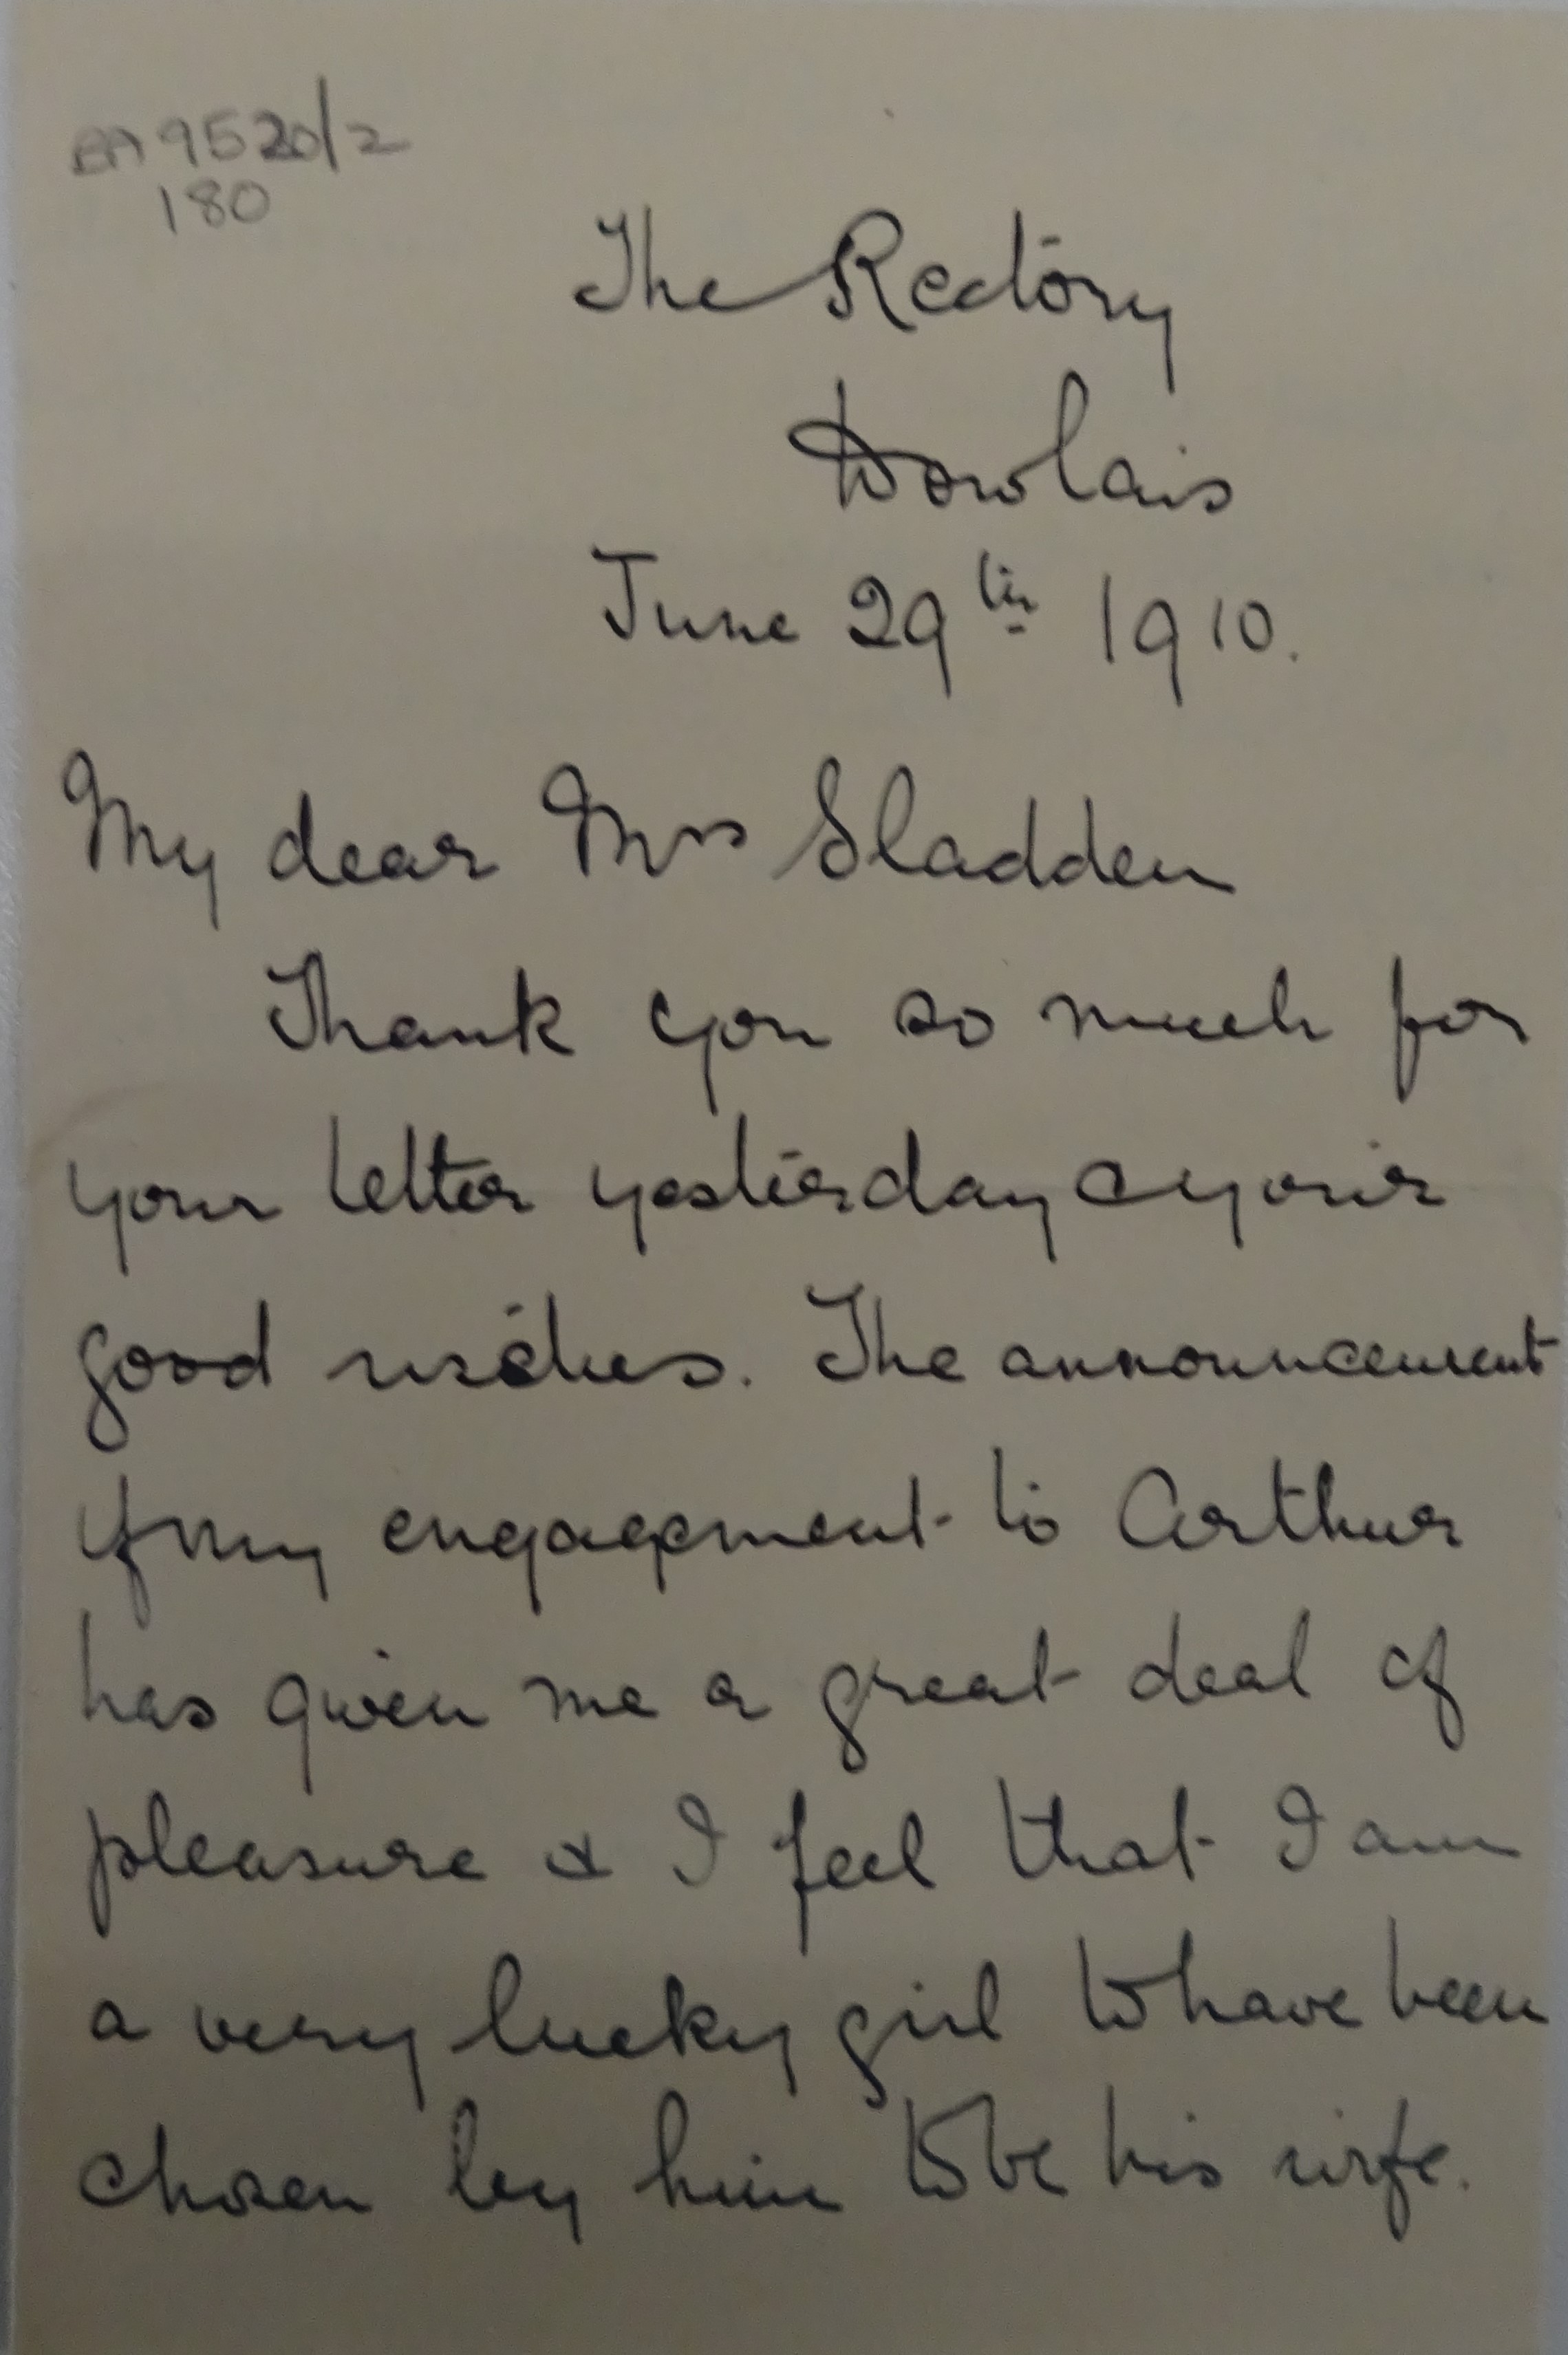 BA 9520/2
180
The Rectory
Dowlais
June 29th 1910.
My dear Mrs Sladden
Thank you so much for
your letter yesterday & your
good wishes. The announcement
of my engagement to Arthur
has given me a great deal of
pleasure & I feel that I am
a very lucky girl to have been
chosen by him to be his wife.